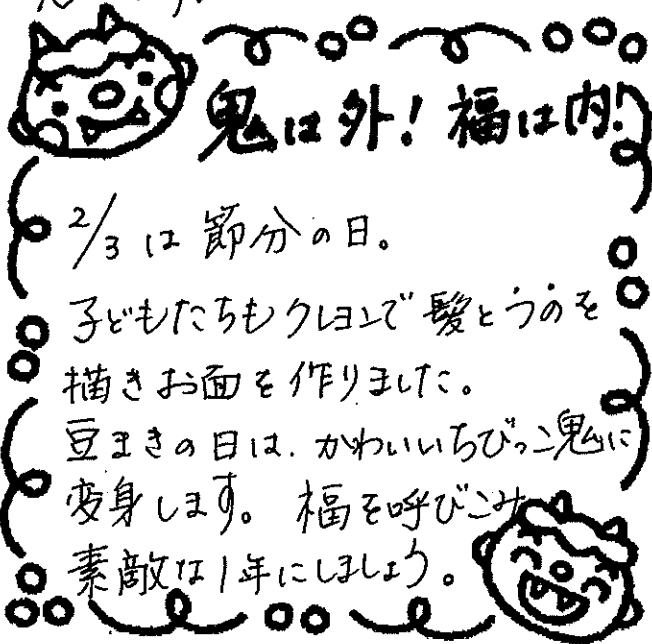 鬼は外！福は内！
2/3は節分の日。
子どもたちもクレヨンで髪とつのを
描きお面を作りました。
豆まきの日は、かわいいちびっこ鬼に
変身します。福を呼びこみ
素敵な1年にしましょう。